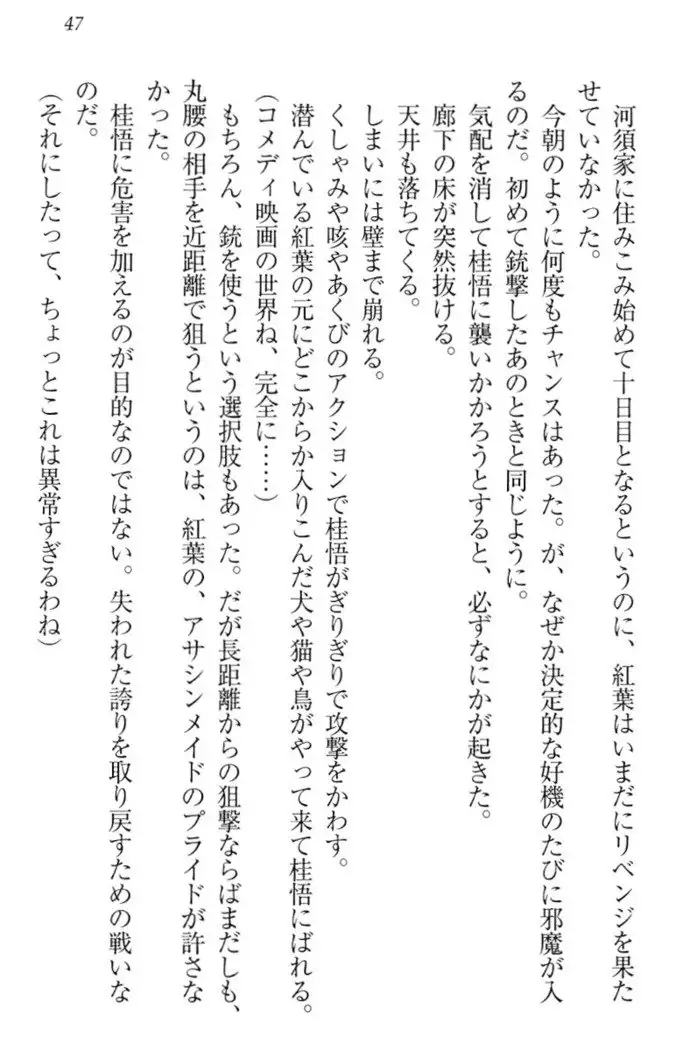 47
河須家に住みこみ始めて十日目となるというのに、紅葉はいまだにリベンジを果た
せていなかった。
今朝のように何度もチャンスはあった。が、なぜか決定的な好機のたびに邪魔が入
るのだ。初めて銃撃したあのときと同じように。
気配を消して桂悟に襲いかかろうとすると、必ずなにかが起きた。
廊下の床が突然抜ける。
天井も落ちてくる。
しまいには壁まで崩れる。
くしゃみや咳やあくびのアクションで桂悟がぎりぎりで攻撃をかわす。
潜んでいる紅葉の元にどこからか入りこんだ犬や猫や鳥がやって来て桂悟にばれる。
(コメディ映画の世界ね、完全に……)
もちろん、銃を使うという選択肢もあった。だが長距離からの狙撃ならばまだしも、
丸腰の相手を近距離で狙うというのは、紅葉の、アサシンメイドのプライドが許さな
かった。
桂悟に危害を加えるのが目的なのではない。失われた誇りを取り戻すための戦いな
のだ。
(それにしたって、ちょっとこれは異常すぎるわね)